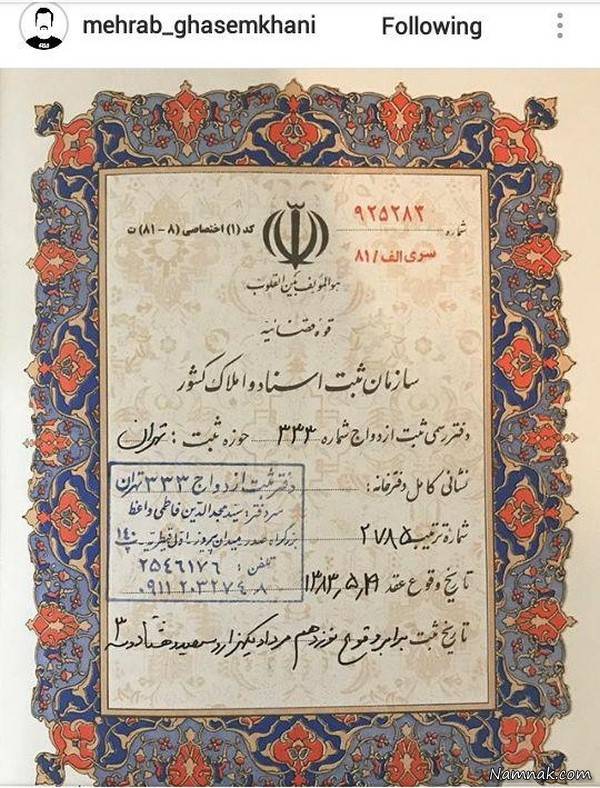 mehrab_ghasemkhani
Following
شماره ۹۲۵۲۸۳
کد (۱) اختصاصی (۸ - ۸۱) ت
سری الف / ۸۱
هوالمؤلف بین القلوب
قوه قضائیه
سازمان ثبت اسناد و املاک کشور
دفتر رسمی ثبت ازدواج شماره ۳۳۳ حوزه ثبت : تهران
نشانی کامل دفترخانه :
دفتر ثبت ازدواج ۳۳۳ تهران
سردفتر: سید مجدالدین فاطمی واعظ
بزرگراه صدر میدان پیروز اول قیطریه پ ۱۴۰
تلفن : ۲۵۴۶۱۷۶
۰۹۱۱ ۲۰۳۲۷۴۰۸
شماره ترتیب ۲۷۸۵
تاریخ وقوع عقد ۱۳۸۳،۵،۱۹
تاریخ ثبت برابر وقوع نوزدهم مرداد یکهزار و سیصد و هشتاد و سه ۳
Namnak.com